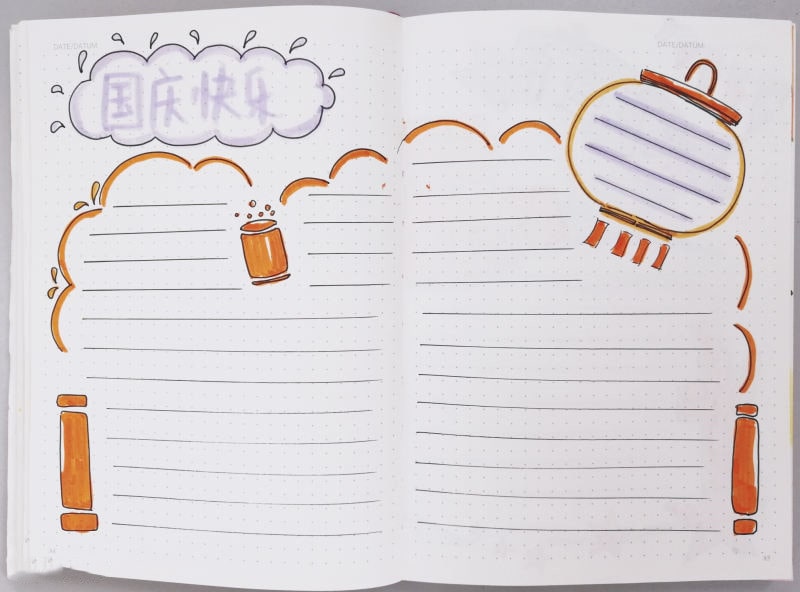 DATE/DATUM
国庆快乐
DATE/DATUM